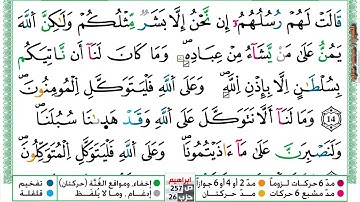 قَالَتْ لَهُمْ رُسُلُهُمُۥٓ إِن نَّحْنُ إِلَّا بَشَرٌ مِّثْلُكُمْ وَلَٰكِنَّ ٱللَّهَ
يَمُنُّ عَلَىٰ مَنْ يَّشَآءُ مِنْ عِبَادِهِۦۖ وَمَا كَانَ لَنَآ أَن نَّاتِيَكُم
بِسُلْطَٰنٍ إِلَّا بِإِذْنِ ٱللَّهِۖ وَعَلَى ٱللَّهِ فَلْيَتَوَكَّلِ ٱلْمُومِنُونَۖ
14 وَمَا لَنَآ أَلَّا نَتَوَكَّلَ عَلَى ٱللَّهِ وَقَدْ هَدَىٰنَا سُبُلَنَاۖ
وَلَنَصْبِرَنَّ عَلَىٰ مَآ ءَاذَيْتُمُونَاۖ وَعَلَى ٱللَّهِ فَلْيَتَوَكَّلِ ٱلْمُتَوَكِّلُونَۖ
مدّ 6 حركات لزوماً مدّ 2 أو 4 أو 6 جوازاً ابراهيم ص 257 حزب 26 إخفاء، ومواقع الغُنَّة (حركتان) تفخيم
مدّ مشبع 6 حركات مدّ حركتان إدغام، وما لا يُلفَظ قلقلة